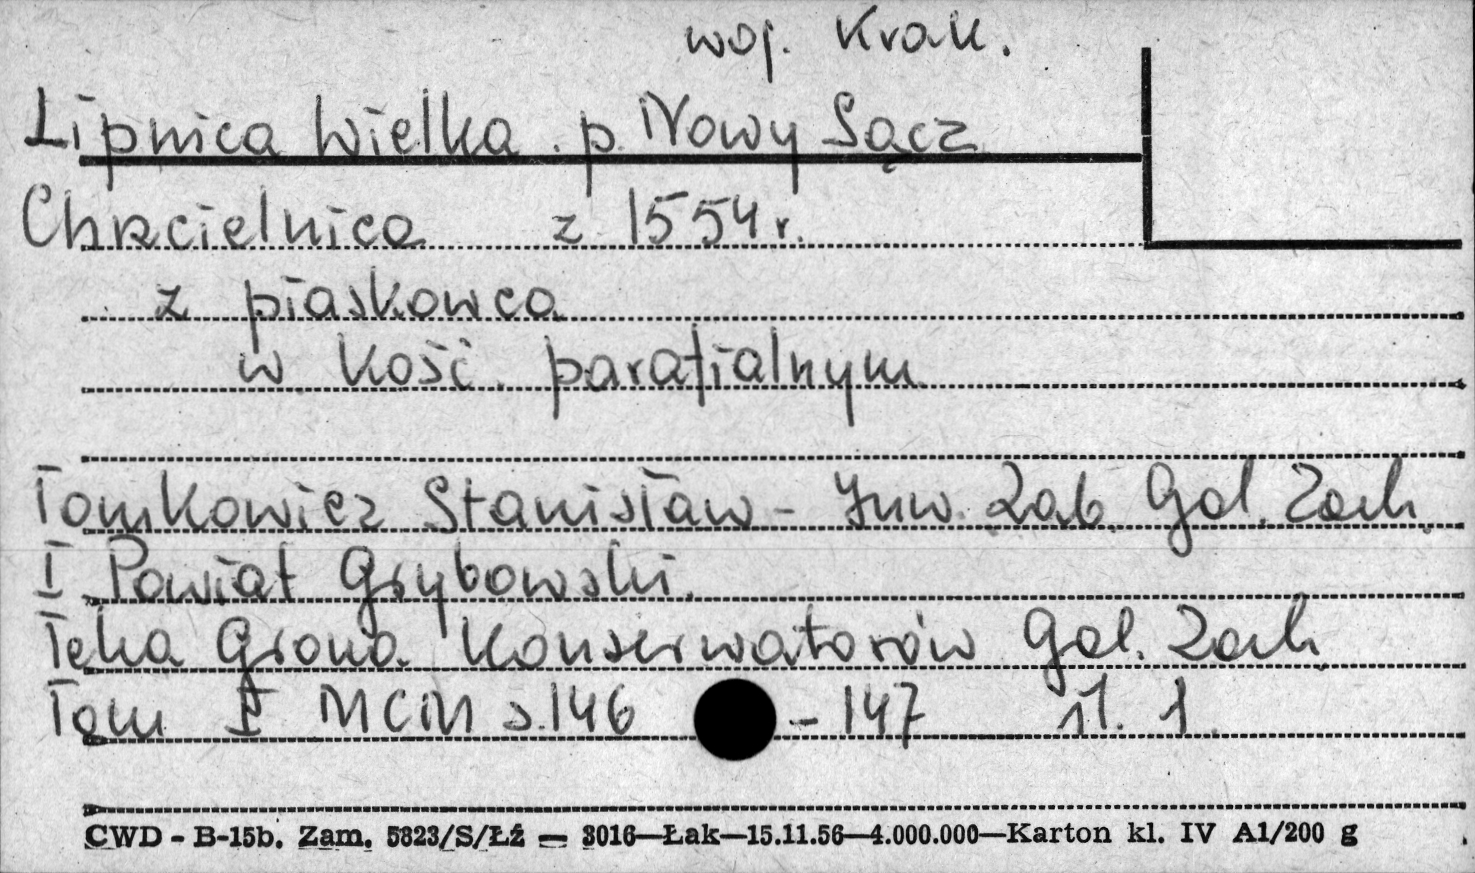 woj. Krak.
Lipnica Wielka. p. Nowy Sącz
Chrzcielnica z 1554 r.
z piaskowca
w kość. parafialnym
Tomkowicz Stanisław - Inw. Zab. Gal. Zach.
I Powiat Grybowski.
Teka Grona Konserwatorów Gal. Zach.
Tom I MCM s. 146 - 147 il. 1
CWD - B-15b. Zam. 5823/S/ŁŹ — 3016—Łak—15.11.56—4.000.000—Karton kl. IV A1/200 g